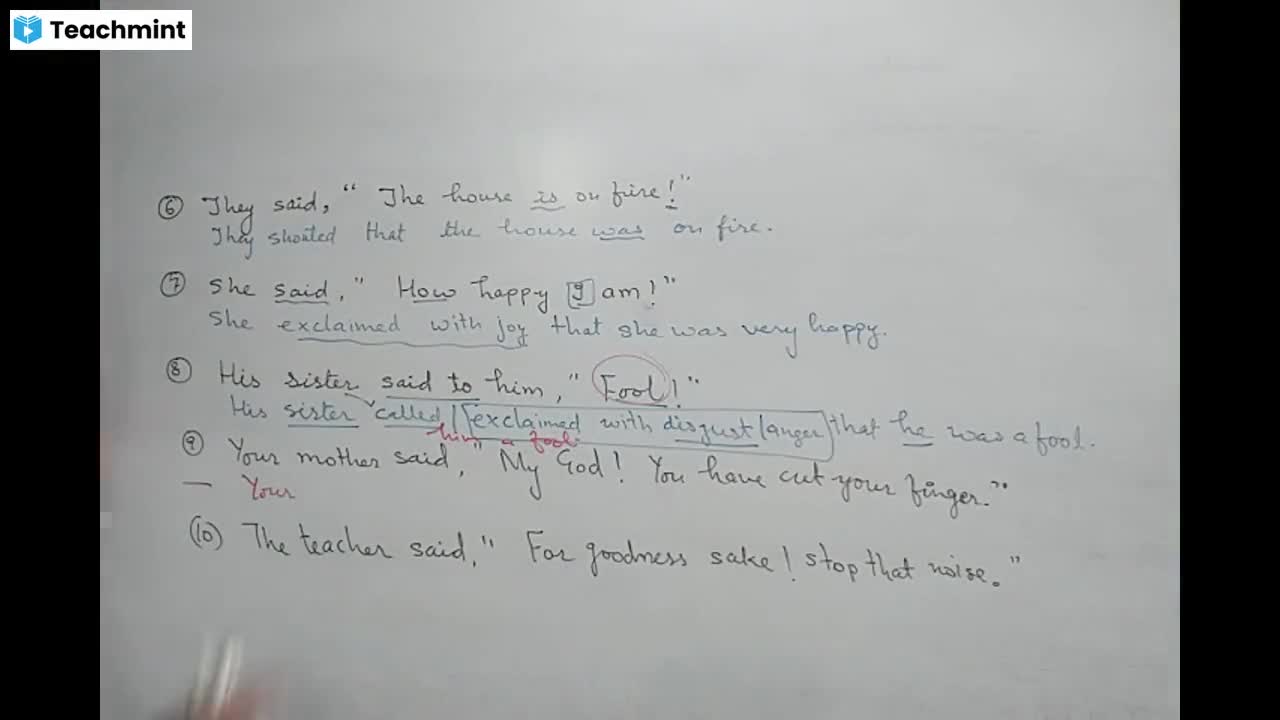 Teachmint
⑥ They said, " The house is on fire!"
They shouted that the house was on fire.
⑦ She said, " How happy I am!"
She exclaimed with joy that she was very happy.
⑧ His sister said to him, " Fool!"
His sister called / [exclaimed with disgust/anger] that he was a fool.
him a fool.
⑨ Your mother said, " My God! You have cut your finger."
— Your
(10) The teacher said, " For goodness sake! stop that noise."